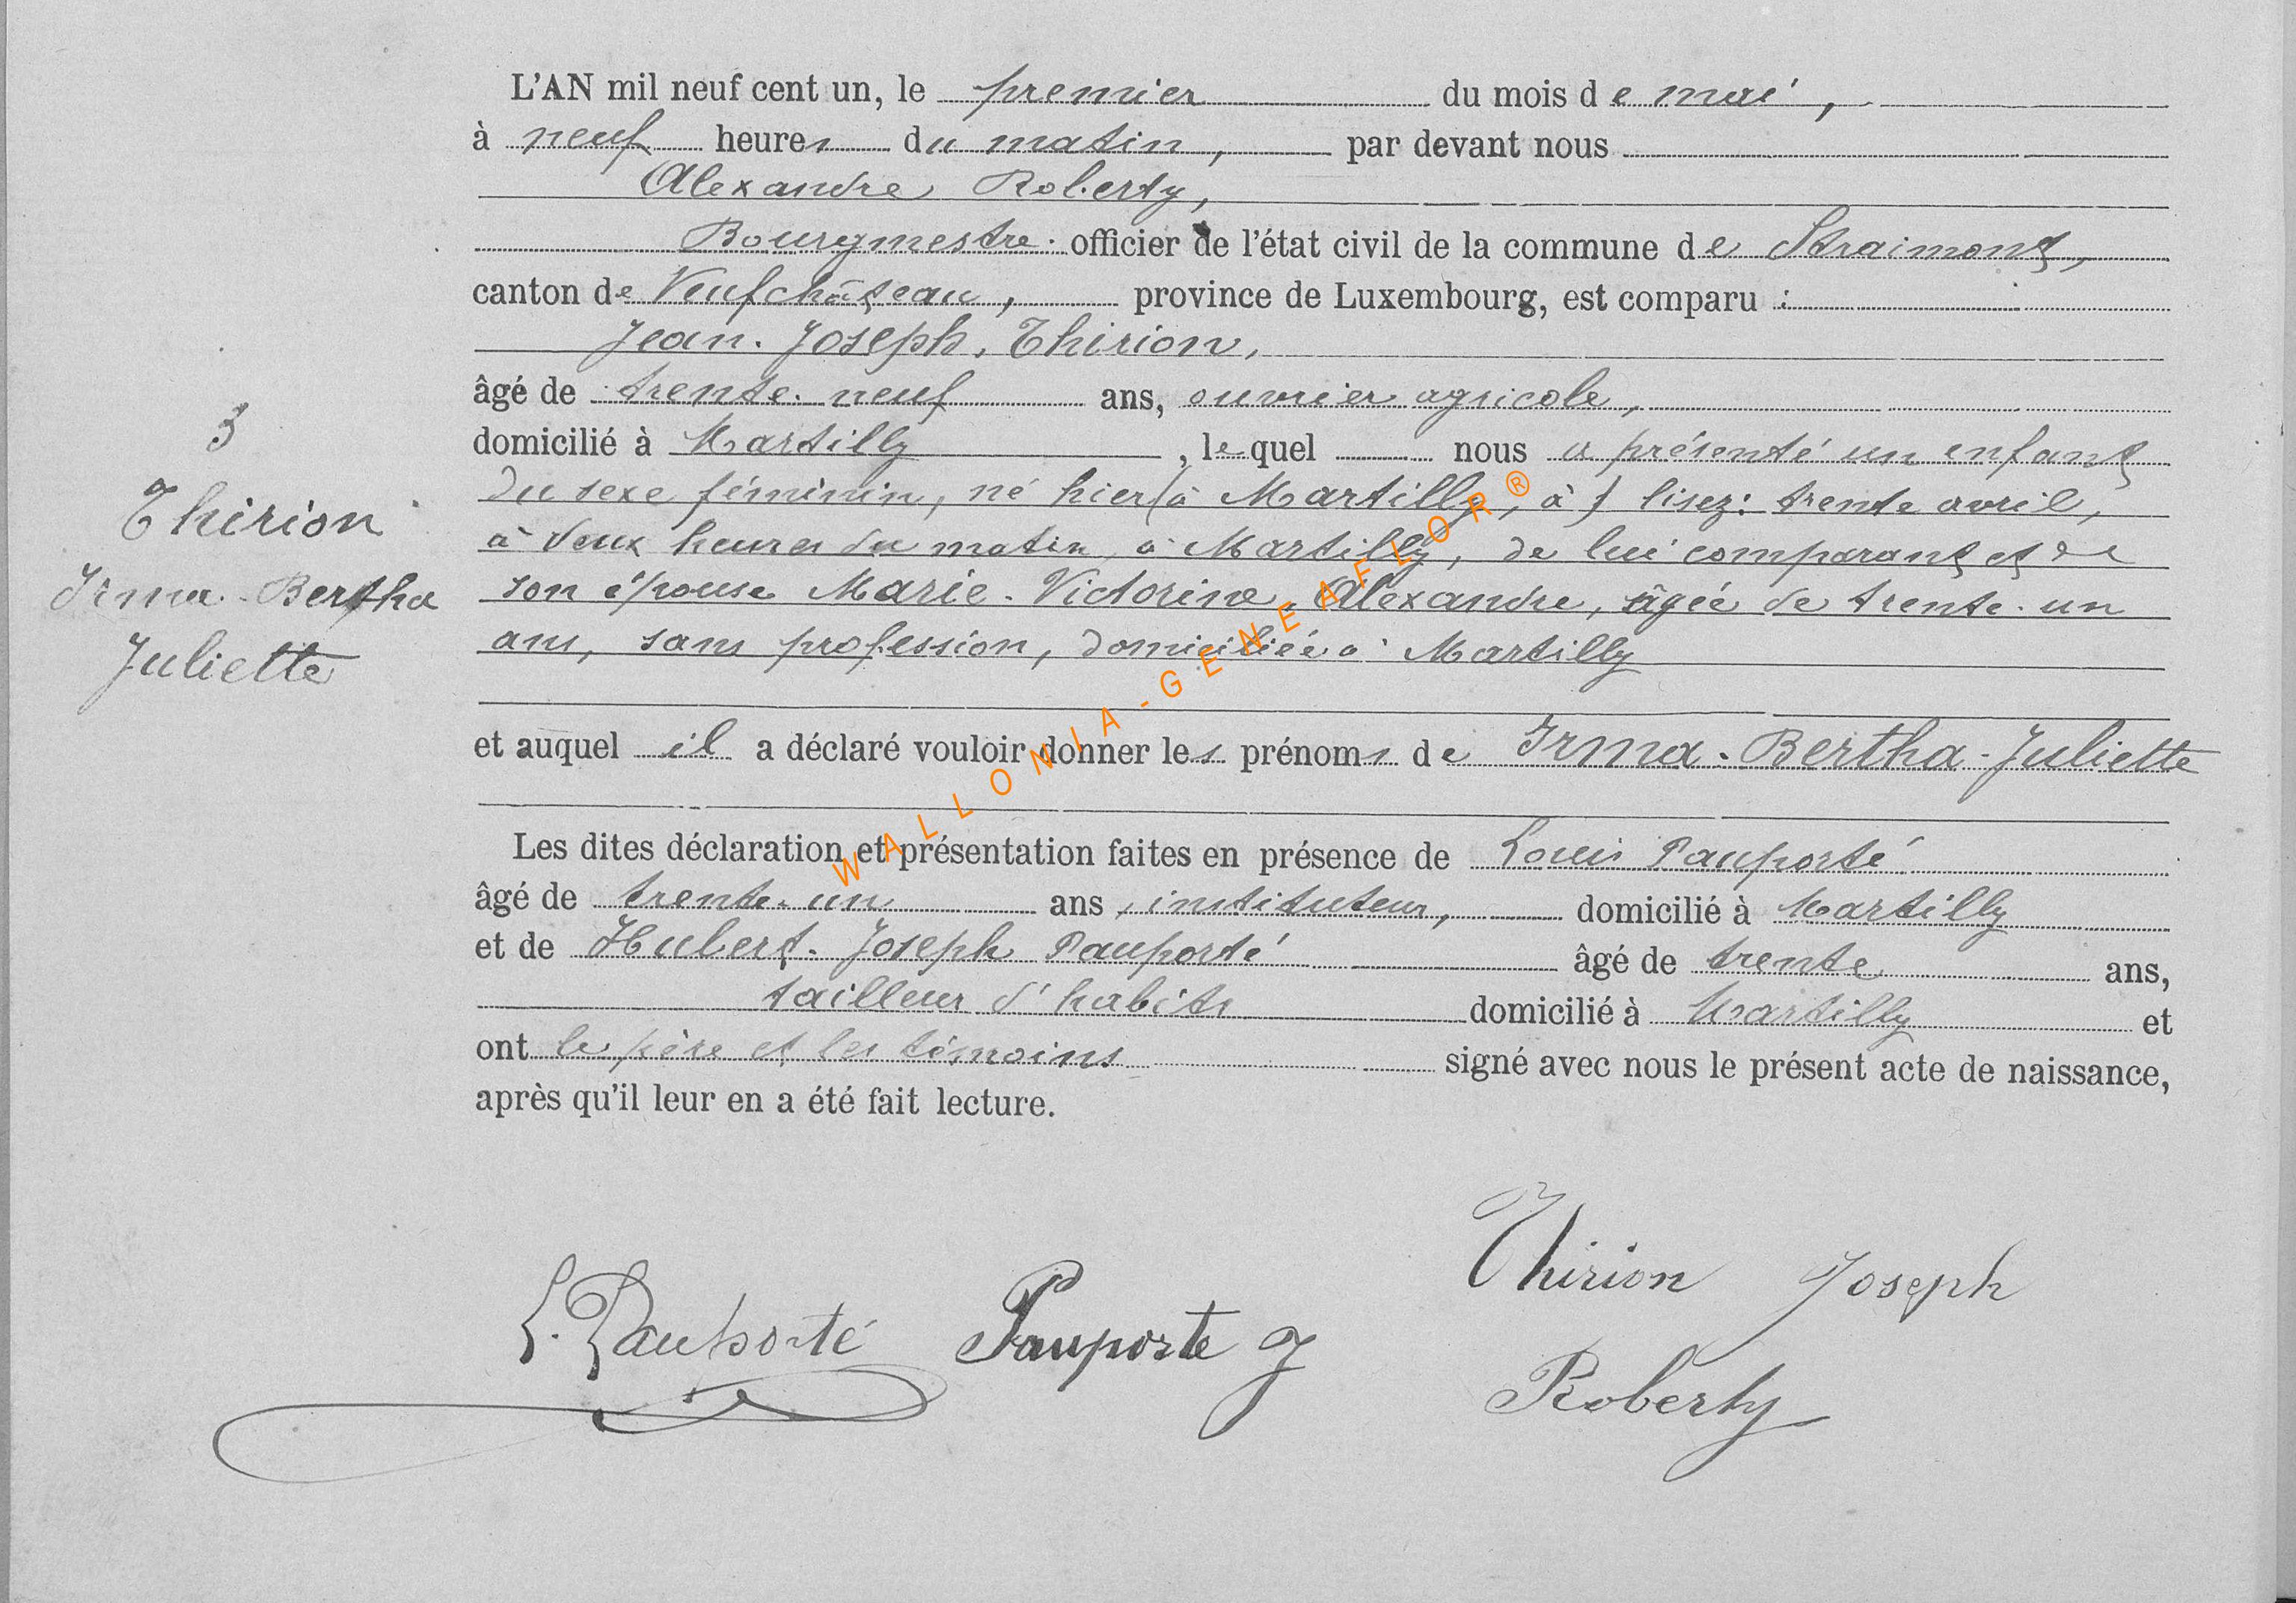 L'AN mil neuf cent un, le premier du mois de mai,
à neuf heures du matin, par devant nous
Alexandre Roberty,
Bourgmestre officier de l'état civil de la commune de Straimont,
canton de Neufchâteau, province de Luxembourg, est comparu :
Jean-Joseph Thirion,
âgé de trente-neuf ans, ouvrier agricole,
domicilié à Martilly, lequel nous a présenté un enfant
3
du sexe féminin, né hier (à Martilly, à) lisez: trente avril,
Thirion
à deux heures du matin, à Martilly, de lui comparant et de
Irma-Bertha
son épouse Marie-Victorine Alexandre, âgée de trente-un
Juliette
ans, sans profession, domiciliée à Martilly
et auquel il a déclaré vouloir donner les prénoms de Irma-Bertha-Juliette
Les dites déclaration et présentation faites en présence de Louis Pauporté
âgé de trente-un ans, instituteur, domicilié à Martilly
et de Hubert-Joseph Pauporté âgé de trente ans,
tailleur d'habits domicilié à Martilly et
ont le père et les témoins signé avec nous le présent acte de naissance,
après qu'il leur en a été fait lecture.
Thirion Joseph
L. Pauporté Pauporte J
Roberty
WALLONIA-GENEAFLOR®